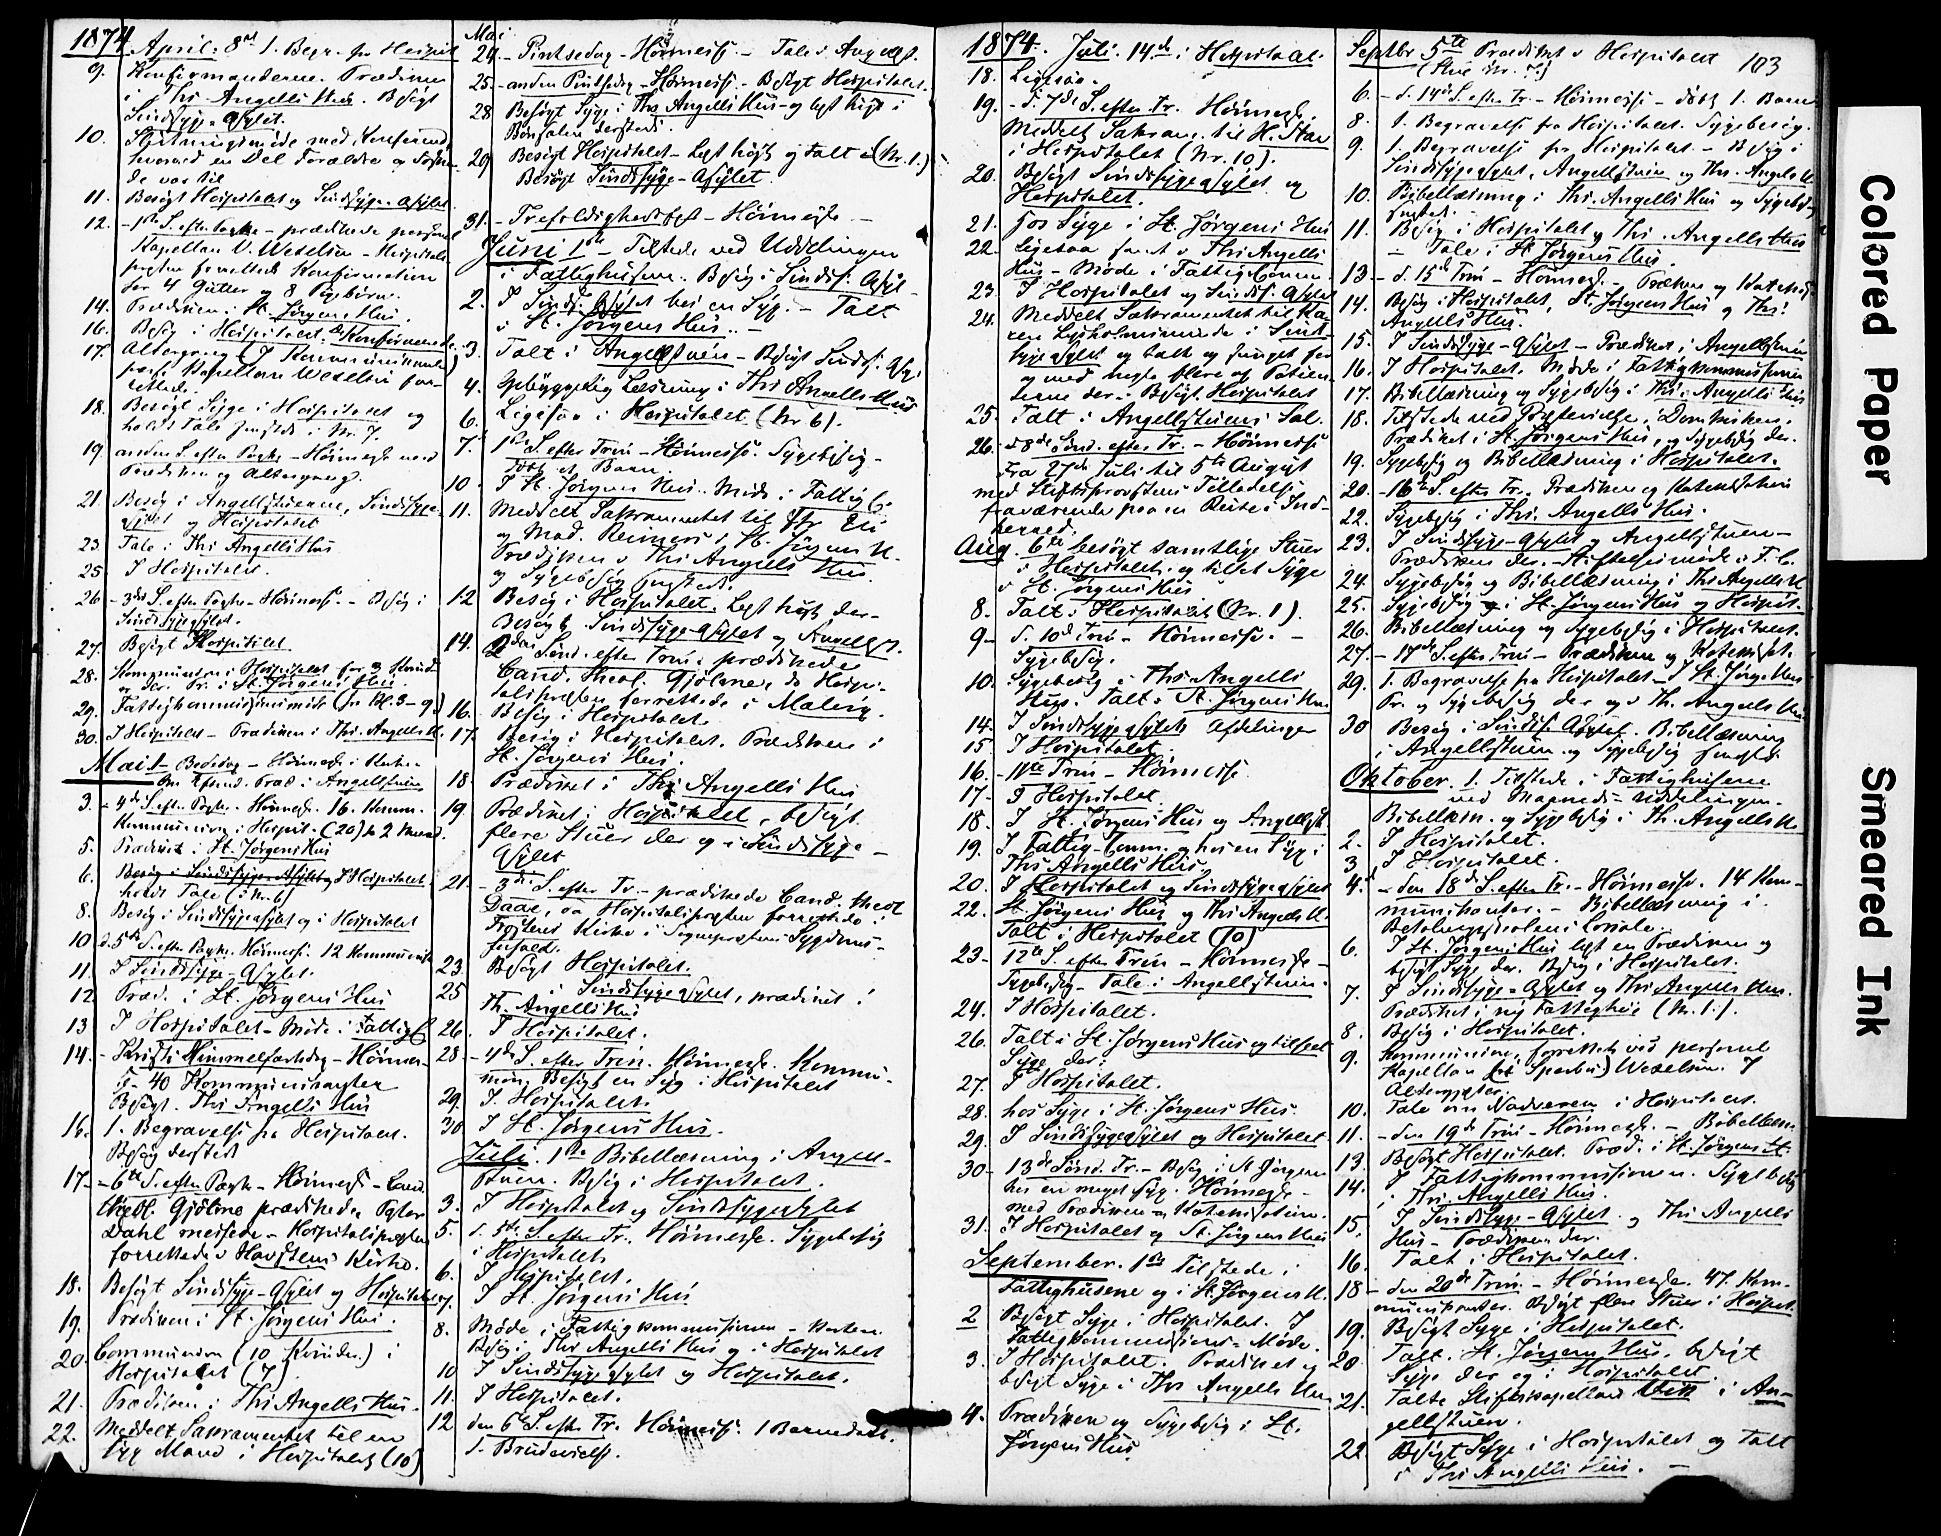 1874 April: 8de 1. Begr. fra Hospit
9. Konfirmanderne. Prædiken
i Ths Angells Hus. Besøgt
Sindssyge-Asylet.
10. med Konfirmand.
hvorved en Del Forældre og
de var til
11. Besøgt Hospitalet og Sindssyge-Asylet
12. - 1ste S. efter Paaske - prædikede personel
Kapellan V. Wexelsen - Hospitals-
præsten forrettede Konfirmation
for 4 Gutter og 8 Pigebørn.
14. Prædiken i St. Jørgens Hus.
16. Besøg i Hospitalet.
17. Altergang
Kapellan Wexelsen for-
rettede.
18. Besøgt Syge i Hospitalet og
holdt Tale i Nr. 7.
19 anden S. efter Paaske - Høimesse med
Prædiken og Altergang.
21. Besøg i Angellstuerne, Sindssyge-
Asylet og Hospitalet
23. Tale i Ths Angells Hus
25. I Hospitalet.
26 - 3die S. efter Paaske - Høimesse. - Besøg i
Sindssygeasylet.
27. Besøgt Hospitalet
28. Kommunion i Hospitalet for 3
Pr. i St. Jørgens Hus
29. Fattigkommissionsmøde (fra Kl. 3-9)
30. I Hospitalet - Prædiken i Ths. Angells H.
Mai 1 - Bededag - Høimesse
Præd. i Angellstuen
3. - 4de S. efter Paaske. Høimesse. 16. Komm.
Kommunion i Hospit. (26)
5. Prædiket i St. Jørgens Hus
6. Besøg i Sindssyge-Asylet og I Hospitalet
holdt Tale (i Nr. 6)
8. Besøg i Sindssygeasylet og i Hospitalet
10 d. 5te S. efter Paaske. Høimesse. 12 Kommunik
11. I Sindssyge-Asylet.
12 Præd. i St. Jørgens Hus
13 I Hospitalet - Møde i Fattigk
14. - Kristi Himmelfartsdag - Høimes-
se - 40 Kommunikanter
Besøgt Ths Angells Hus
16. 1. Begravelse fra Hospitalet.
Besøg dersteds
17. - 6te S. efter Paaske - Høimesse - Cand.
theol. Gjølme prædikede. Pastor
Dahl messede - Hospitalspræsten
forrettede i Havstens Kirke.
18. Besøgt Sindssyge-Asylet og Hospitalet
19. Prædiken i St. Jørgens Hus.
20. Communion (10 Kvinder.) i
Hospitalet (7)
21. Prædiken i Ths Angells Hus.
22. Meddelt Sakramentet til en
syg Mand i Hospitalet (10)
Mai
24. - Pintsedag - Høimesse - Tale i Angellst.
25. - anden Pintsedag - Høimesse - Besøgt Hospitalet.
28 Besøgt Syge i Ths Angells Hus - og læst høit i
Bønsalen dersteds.
29 Besøgt Hospitalet - Læst høit og talt i (Nr. 1.)
Besøgt Sindssyge-Asylet.
31. - Trefoldighedsfest - Høimesse -
Juni 1ste - Tilstede ved Uddelingen
i Fattighusene. Besøg i Sindss. Asyl-
2. I Sinds. Asylet hos en Syg. - Talt
i St. Jørgens Hus. -
3. Talt i Angellstuen - Besøgt Sindss. Asy.
4. Opbyggelig Læsning i Ths Angells Hus
6. Ligesaa i Hospitalet (Nr 6).
7. 1ste S. efter Trin - Høimesse. Sygebesøg -
døbt et Barn.
10. I St. Jørgens Hus. Møde i Fattigk.
11. Meddelt Sakramentet til
og Mad. Reimers i St. Jørgens H.
Prædiken i Ths Angells Hus.
og Sygebesøg
12 Besøg i Hospitalet. Læst høit der -
Besøgt Sindssyge-Asylet og Angellst.
14. 2den Sønd. efter Trin: prædikede
Cand. theol. Gjølme, da Hospi-
talspræsten forrettede i Malvig.
16. Besøg i Hospitalet.
17. Besøg i Hospitalet. Prædiken i
St. Jørgens Hus.
18 Prædiket i Ths Angells Hus
19. Prædiket i Hospitalet, besøgt
flere Stuer der og i Sindssyge-
Asylet
21. - 3die S. efter Tr. - prædikede Cand. theol
Daae, da Hospitalspræsten forrettede i
Kirke i Sognepræstens Sygdoms-
forfald.
23. Besøgt Hospitalet.
25 i Sindssygeasylet, prædiket i
Th. Angells Hus
26. I Hospitalet.
28 - 4de S. efter Trin. Høimesse. Kommu-
nion. Besøgt en Syg i Hospitalet
29. I Hospitalet.
30 I St. Jørgens Hus.
Juli. 1ste Bibellæsning i Angell-
stuen. Besøg i Hospitalet.
3. I Hospitalet og Sindssygeasylet
5. d. 5te S. efter Tr. Høimesse. Sygebesøg
i Hospitalet
6. I Hospitalet.
7. I St. Jørgens Hus
8. Møde i Fattigkommissionen -
Besøg i Ths Angells Hus og i Hospitalet
10 I Sindssygeasylet og Hospitalet.
11. I Hospitalet.
12 den 6te S. efter Tr. Høimesse. 1 Barnedaab.
1. Brudevielse.
1874. Juli: 14de i Hospitalet.
18. Ligesaa.
19. - d. 7de S. efter Tr. Høimesse
Meddelt Sakram. til
i Hospitalet (Nr. 10).
20. Besøgt Sindssygeasylet og
Hospitalet.
21. hos Syge i St. Jørgens Hus
22. Ligesaa samt i Ths Angells
Hus - Møde i Fattigkomm.
23. I Hospitalet og Sindss. Asylet
24. Meddelt Sakramentet til Ka-
ren i Sind-
sygeasylet og talt og sunget for
og med nogle flere af Patien-
terne der. Besøgt Hospitalet
25. Talt i Angellstuens Sal.
26. - d 8de Sønd. efter Tr. - Høimesse
Fra 27de Juli til 5te August
med Stiftsprovstens Tilladelse
fraværende paa en Reise i Ind-
herred.
Aug. 6te besøgt samtlige Stuer
i Hospitalet, og tilset Syge
i St. Jørgens Hus
8. Talt i Hospitalet (Nr. 1).
9 - d. 10de Trin - Høimesse. -
Sygebesøg.
10. Sygebesøg i Ths Angells
Hus. Talt i St. Jørgens Hus.
14. I Sindssygeasylets Afdelinger
15 I Hospitalet.
16. - 11te Trin - Høimesse.
17. I Hospitalet.
18. I St. Jørgens Hus og Angellst.
19. I Fattig-Comm. og hos en Syg i
Ths Angells Hus.
20. I Hospitalet og Sindssygeasylet
22. St. Jørgens Hus og Ths Angells H.
Talt i Hospitalet (10)
23 - 12te S. efter Trin - Høimesse -
Sygebesøg - Tale i Angellstuen.
24. I Hospitalet.
26. Talt i St. Jørgens Hus og tilset
Syge der.
27. I Hospitalet.
28. hos Syge i St. Jørgens Hus.
29. I Sindssygeasylet og Hospitalet
30 - 13de Sønd. Tr. - Besøg i St Jørgens
hos en meget syg. Høimesse -
med Prædiken og Katekisation.
31. I Hospitalet og St. Jørgens Hus
September. 1ste Tilstede i
Fattighusene og i St. Jørgens H.
2 Besøgt Syge i Hospitalet. I
Fattigkommissions-Møde.
3. I Hospitalet. Prædiket og
besøgt Syge i Ths Angells Hus
4. Prædiken og Sygebesøg i St.
Jørgens Hus.
Septbr 5te Prædiket i Hospitalet 103
(Stue Nr. 7.)
6. - d. 14de S. efter Tr. - Høimesse - døbt 1. Barn
8. 1. Begravelse fra Hospitalet. Sygebesøg.
9. 1. Begravelse fra Hospitalet - Besøg i
Sindssygeasylet, Angellstuen og Ths. Angells H
10. Bibellæsning i Ths. Angells Hus og Sygebesøg
11. Besøg i Hospitalet og Ths. Angells Hus
- Tale i St Jørgens Hus.
13 - d. 15de Trin - Høimesse. - Prædiken og Katekis
14. Besøg i Hospitalet, St. Jørgens Hus og Ths.
Angells Hus.
15. I Sindssyge-Asylet - Prædiket i Angellstuen
16. I Hospitalet. Møde i Fattigkommissionen
17. Bibellæsning og Sygebesøg i Ths. Angells Hus
18. Tilstede ved Præstevielse i Domkirken.
Prædiket i St. Jørgens Hus, og Sygebesøg der.
19. Sygebesøg og Bibellæsning i Hospitalet.
20. - 16de S. efter Tr. Prædiken og Katekisation
22. Sygebesøg i Ths. Angells Hus.
23. I Sindssyge-Asylet og Angellstuen -
Prædiken der. - i F. C.
24. Sygebesøg og Bibellæsning i Ths Angells H
25. Sygebesøg i St. Jørgens Hus og Hospit.
26. Bibellæsning og Sygebesøg i Hospitalet.
27. - 17de S. efter Trin - Prædiken og Katekisat.
29. 1. Begravelse fra Hospitalet - I St. Jørgens Hus
Pr. og Sygebesøg der og i Th. Angells Hus
30 Besøg i Sindss. Asylet. Bibellæsning
i Angellstuen og Sygebesøg
Oktober. 1. Tilstede i Fattighusene
ved Maaneds-Uddelingen.
Bibellæsn. og Sygebesøg i Th. Angells H.
2. I Hospitalet.
3 I Hospitalet.
4. - den 18de S. efter Tr. - Høimesse. 14 Kom-
munikanter. - Bibellæsning i
Betalingsskolens Lokale.
6. I St. Jørgens Hus læst en Prædiken og
besøgt Syge der. Besøg i Hospitalet.
7. I Sindssyge-Asylet og Ths Angells Hus.
Prædiket i ny Fattighus (Nr. 1.).
8. Besøg i Hospitalet.
9. Kommunion, forrettet ved personel
Kapellan Wexelsen. 7
Altergjæster.
10. Tale om Nadveren i Hospitalet.
11. - den 19de Trin - Høimesse. - Bibellæsn
13. Besøgt Hospitalet. Præd. i St. Jørgens H.
14. I Fattigkommissionen. Sygebesøg
i Ths Angells Hus.
15. I Sindssyge-Asylet og Ths Angells
Hus - Prædiken der.
16. Talt i Hospitalet.
18 - den 20de Trin. - Høimesse. 47. Kom-
munikanter. Besøgt flere Stuer i Hospit.
19. Besøgt Syge i Hospitalet.
20. Talt i St. Jørgens Hus, besøgt
Syge der og i Hospitalet.
21. Talte Stiftskapellan i An-
gellstuen.
22 Besøgt Syge i Hospitalet og talt
i Ths Angells Hus. -
Colored Paper
Smeared Ink